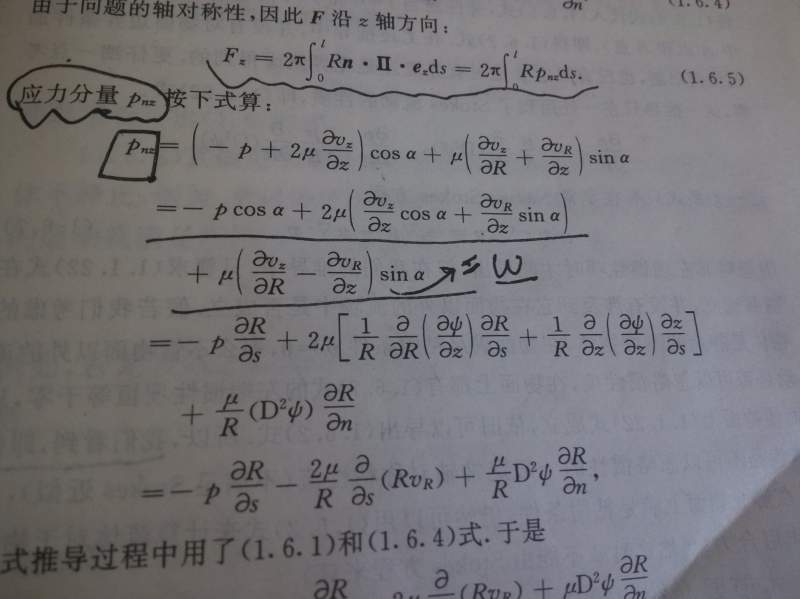 ∂n
(1.6.4)
由于问题的轴对称性,因此 F 沿 z 轴方向:
F_z = 2π∫_0^l Rn · Π · e_z ds = 2π∫_0^l Rp_{nz}ds. (1.6.5)
应力分量 p_{nz} 按下式算:
p_{nz} = (− p + 2μ ∂v_z/∂z) cos α + μ(∂v_z/∂R + ∂v_R/∂z) sin α
= − p cos α + 2μ(∂v_z/∂z cos α + ∂v_R/∂z sin α)
+ μ(∂v_z/∂R − ∂v_R/∂z) sin α W
= − p ∂R/∂s + 2μ[1/R ∂/∂R(∂ψ/∂z) ∂R/∂s + 1/R ∂/∂z(∂ψ/∂z) ∂z/∂s]
+ μ/R (D²ψ) ∂R/∂n
= − p ∂R/∂s − 2μ/R ∂/∂s (Rv_R) + μ/R D²ψ ∂R/∂n,
式推导过程中用了(1.6.1)和(1.6.4)式.于是
∂R 2μ ∂ (Rv_R) + μD²ψ ∂R/∂n